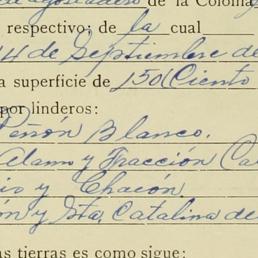 de agostadero de la Colonia
respectivo; de la cual
14 de Septiembre de
a superficie de 150(Ciento
por linderos:
Peñón Blanco.
Alamo y Fracción Ca
io y Chacón
ón y Sta. Catalina de
as tierras es como sigue: